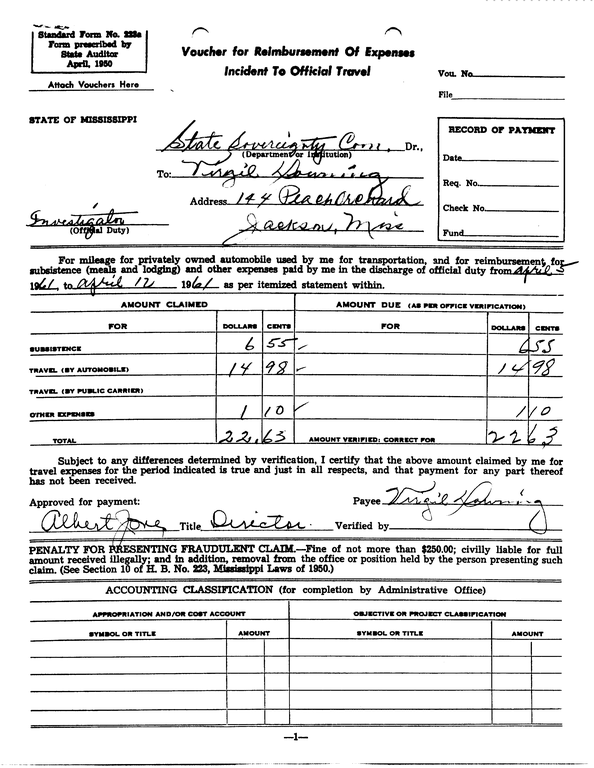 Standard Form No. 223a
Form prescribed by
State Auditor
April, 1950
Attach Vouchers Here
Voucher for Reimbursement Of Expenses
Incident To Official Travel
Vou. No.
File
STATE OF MISSISSIPPI
State Sovereignty Com. Dr.,
(Department or Institution)
To: Virgil Downing
Address 144 Peach Orchard
Jackson, Miss
Investigator
(Official Duty)
RECORD OF PAYMENT
Date
Req. No.
Check No.
Fund
For mileage for privately owned automobile used by me for transportation, and for reimbursement for
subsistence (meals and lodging) and other expenses paid by me in the discharge of official duty from april 5
1961, to april 12 1961 as per itemized statement within.
AMOUNT CLAIMED AMOUNT DUE (AS PER OFFICE VERIFICATION)
FOR DOLLARS CENTS FOR DOLLARS CENTS
SUBSISTENCE 6 55 6 55
TRAVEL (BY AUTOMOBILE) 14 98 14 98
TRAVEL (BY PUBLIC CARRIER)
OTHER EXPENSES 1 10 1 10
TOTAL 22.63 AMOUNT VERIFIED: CORRECT FOR 22 63
Subject to any differences determined by verification, I certify that the above amount claimed by me for
travel expenses for the period indicated is true and just in all respects, and that payment for any part thereof
has not been received.
Approved for payment: Payee Virgil Downing
Albert Jones Title Director. Verified by
PENALTY FOR PRESENTING FRAUDULENT CLAIM.—Fine of not more than $250.00; civilly liable for full
amount received illegally; and in addition, removal from the office or position held by the person presenting such
claim. (See Section 10 of H. B. No. 223, Mississippi Laws of 1950.)
ACCOUNTING CLASSIFICATION (for completion by Administrative Office)
APPROPRIATION AND/OR COST ACCOUNT OBJECTIVE OR PROJECT CLASSIFICATION
SYMBOL OR TITLE AMOUNT SYMBOL OR TITLE AMOUNT
—1—